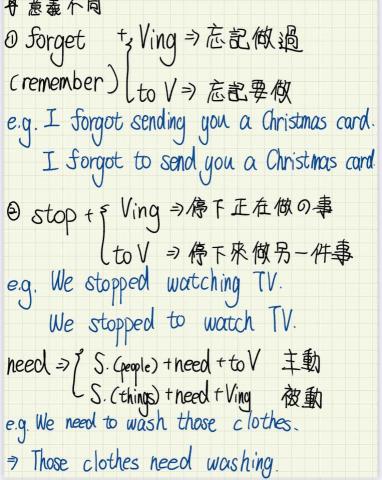 意義不同
① forget + { Ving ⇒ 忘記做過
(remember) to V ⇒ 忘記要做
e.g. I forgot sending you a Christmas card.
I forgot to send you a Christmas card.
② stop + { Ving ⇒ 停下正在做の事
to V ⇒ 停下來做另一件事
e.g. We stopped watching TV.
We stopped to watch TV.
need ⇒ { S.(people) + need + to V 主動
S.(things) + need + Ving 被動
e.g. We need to wash those clothes.
⇒ Those clothes need washing.